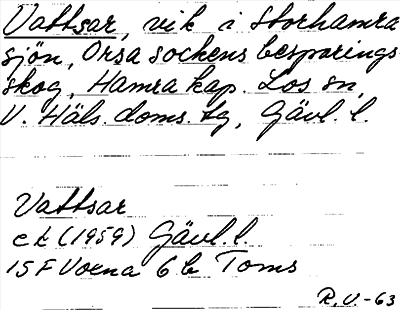 Vattsar, vik i Storhamra
sjön, Orsa sockens besparings
skog, Hamra kap. Los sn,
V. Häls. doms. tg, Gävl. l.
Vattsar
ek (1959) Gävl. l.
15 F Voxna 6 b Toms
R. V. - 63